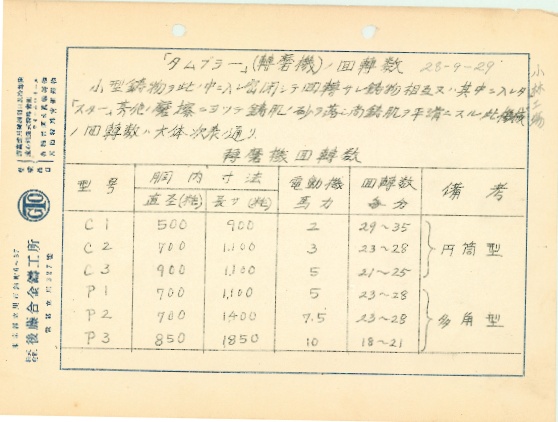 「タムブラー」(轉磨機)ノ回轉数 28-9-29
小林工場
小型鋳物ヲ此ノ中ニ入レ密閉シテ回轉サレ鋳物相互又ハ其中ニ入レタ
「スター」其他ノ磨擦ニヨツテ鋳肌ノ砂ヲ落シ尚鋳肌ヲ平滑ニスル此機械
ノ回轉数ハ大体次表ノ通リ
轉磨機回轉数
型号 胴内寸法 電動機馬力 回轉数毎分 備考
直径(粍) 長サ(粍)
C1 500 900 2 29~35
C2 700 1,100 3 23~28 円筒型
C3 900 1,100 5 21~25
P1 700 1,100 5 23~28
P2 700 1400 7.5 23~28 多角型
P3 850 1850 10 18~21
GTO
後藤合金鑄工所